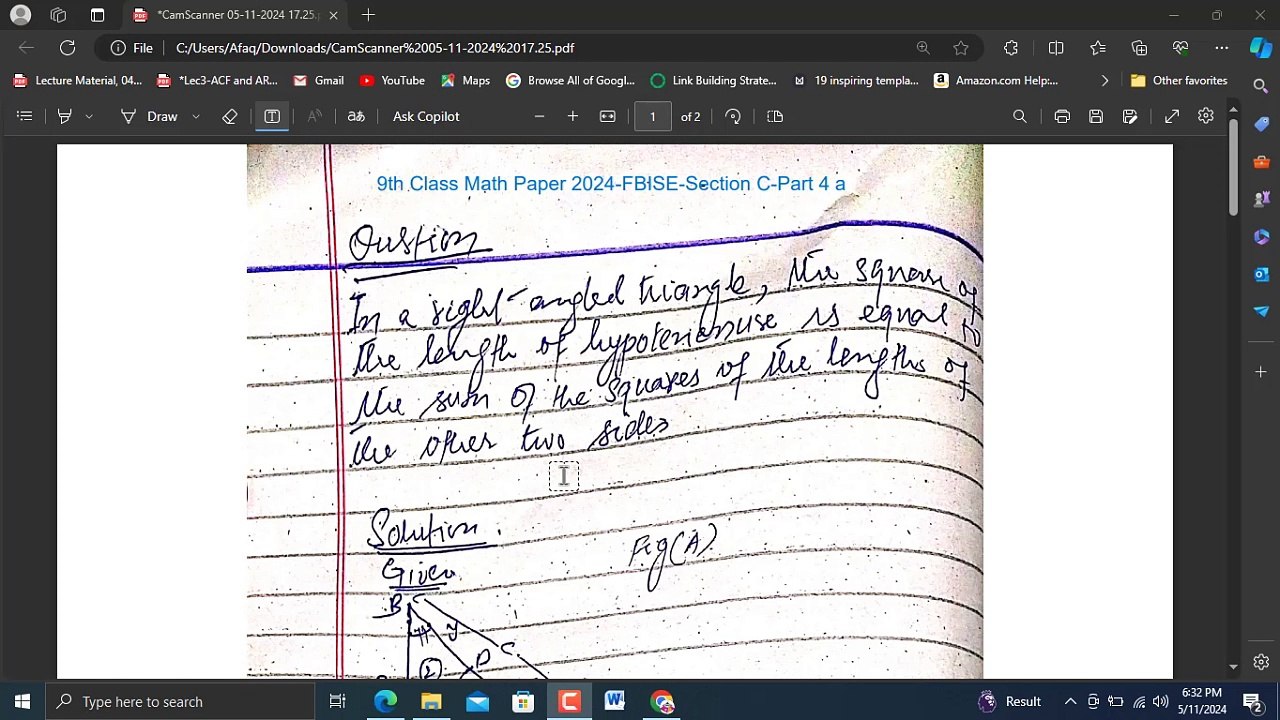 *CamScanner 05-11-2024 17.25.p
File C:/Users/Afaq/Downloads/CamScanner%2005-11-2024%2017.25.pdf
Lecture Material, 04... *Lec3-ACF and AR... Gmail YouTube Maps Browse All of Googl... Link Building Strate... 19 inspiring templa... Amazon.com Help:... Other favorites
Draw Ask Copilot 1 of 2
9th Class Math Paper 2024-FBISE-Section C-Part 4 a
Question
In a right-angled triangle, the square of
the length of hypotenuse is equal to
the sum of the squares of the lengths of
the other two sides
Solution.
Fig(A)
Given
B
y
C
D
2
Type here to search
Result
6:32 PM
5/11/2024
2